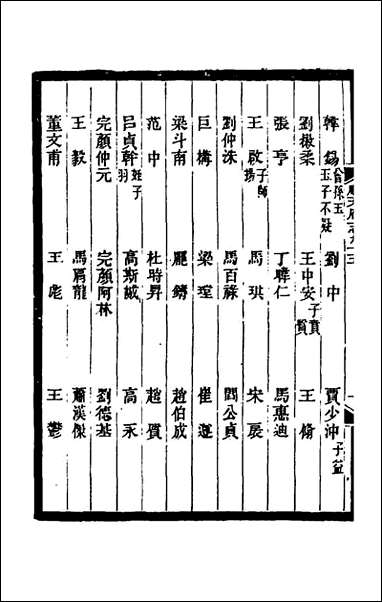 韓錫 曾孫玉 玉子不疑 劉中 賈少沖 子益
劉徽柔 王中安 子賁 賢 王翛
張亨 丁暐仁 馬惠迪
王啟 子師揚 馬琪 宋扆
劉仲洙 馬百祿 閻公貞
巨構 梁瑝 崔遵
梁斗南 龐鑄 趙伯成
范中 杜時昇 趙質
呂貞幹 姪子羽 高斯諴 高永
完顏仲元 完顏阿林 劉德基
王毅 馬肩龍 蕭漢傑
董文甫 王彪 王鬱